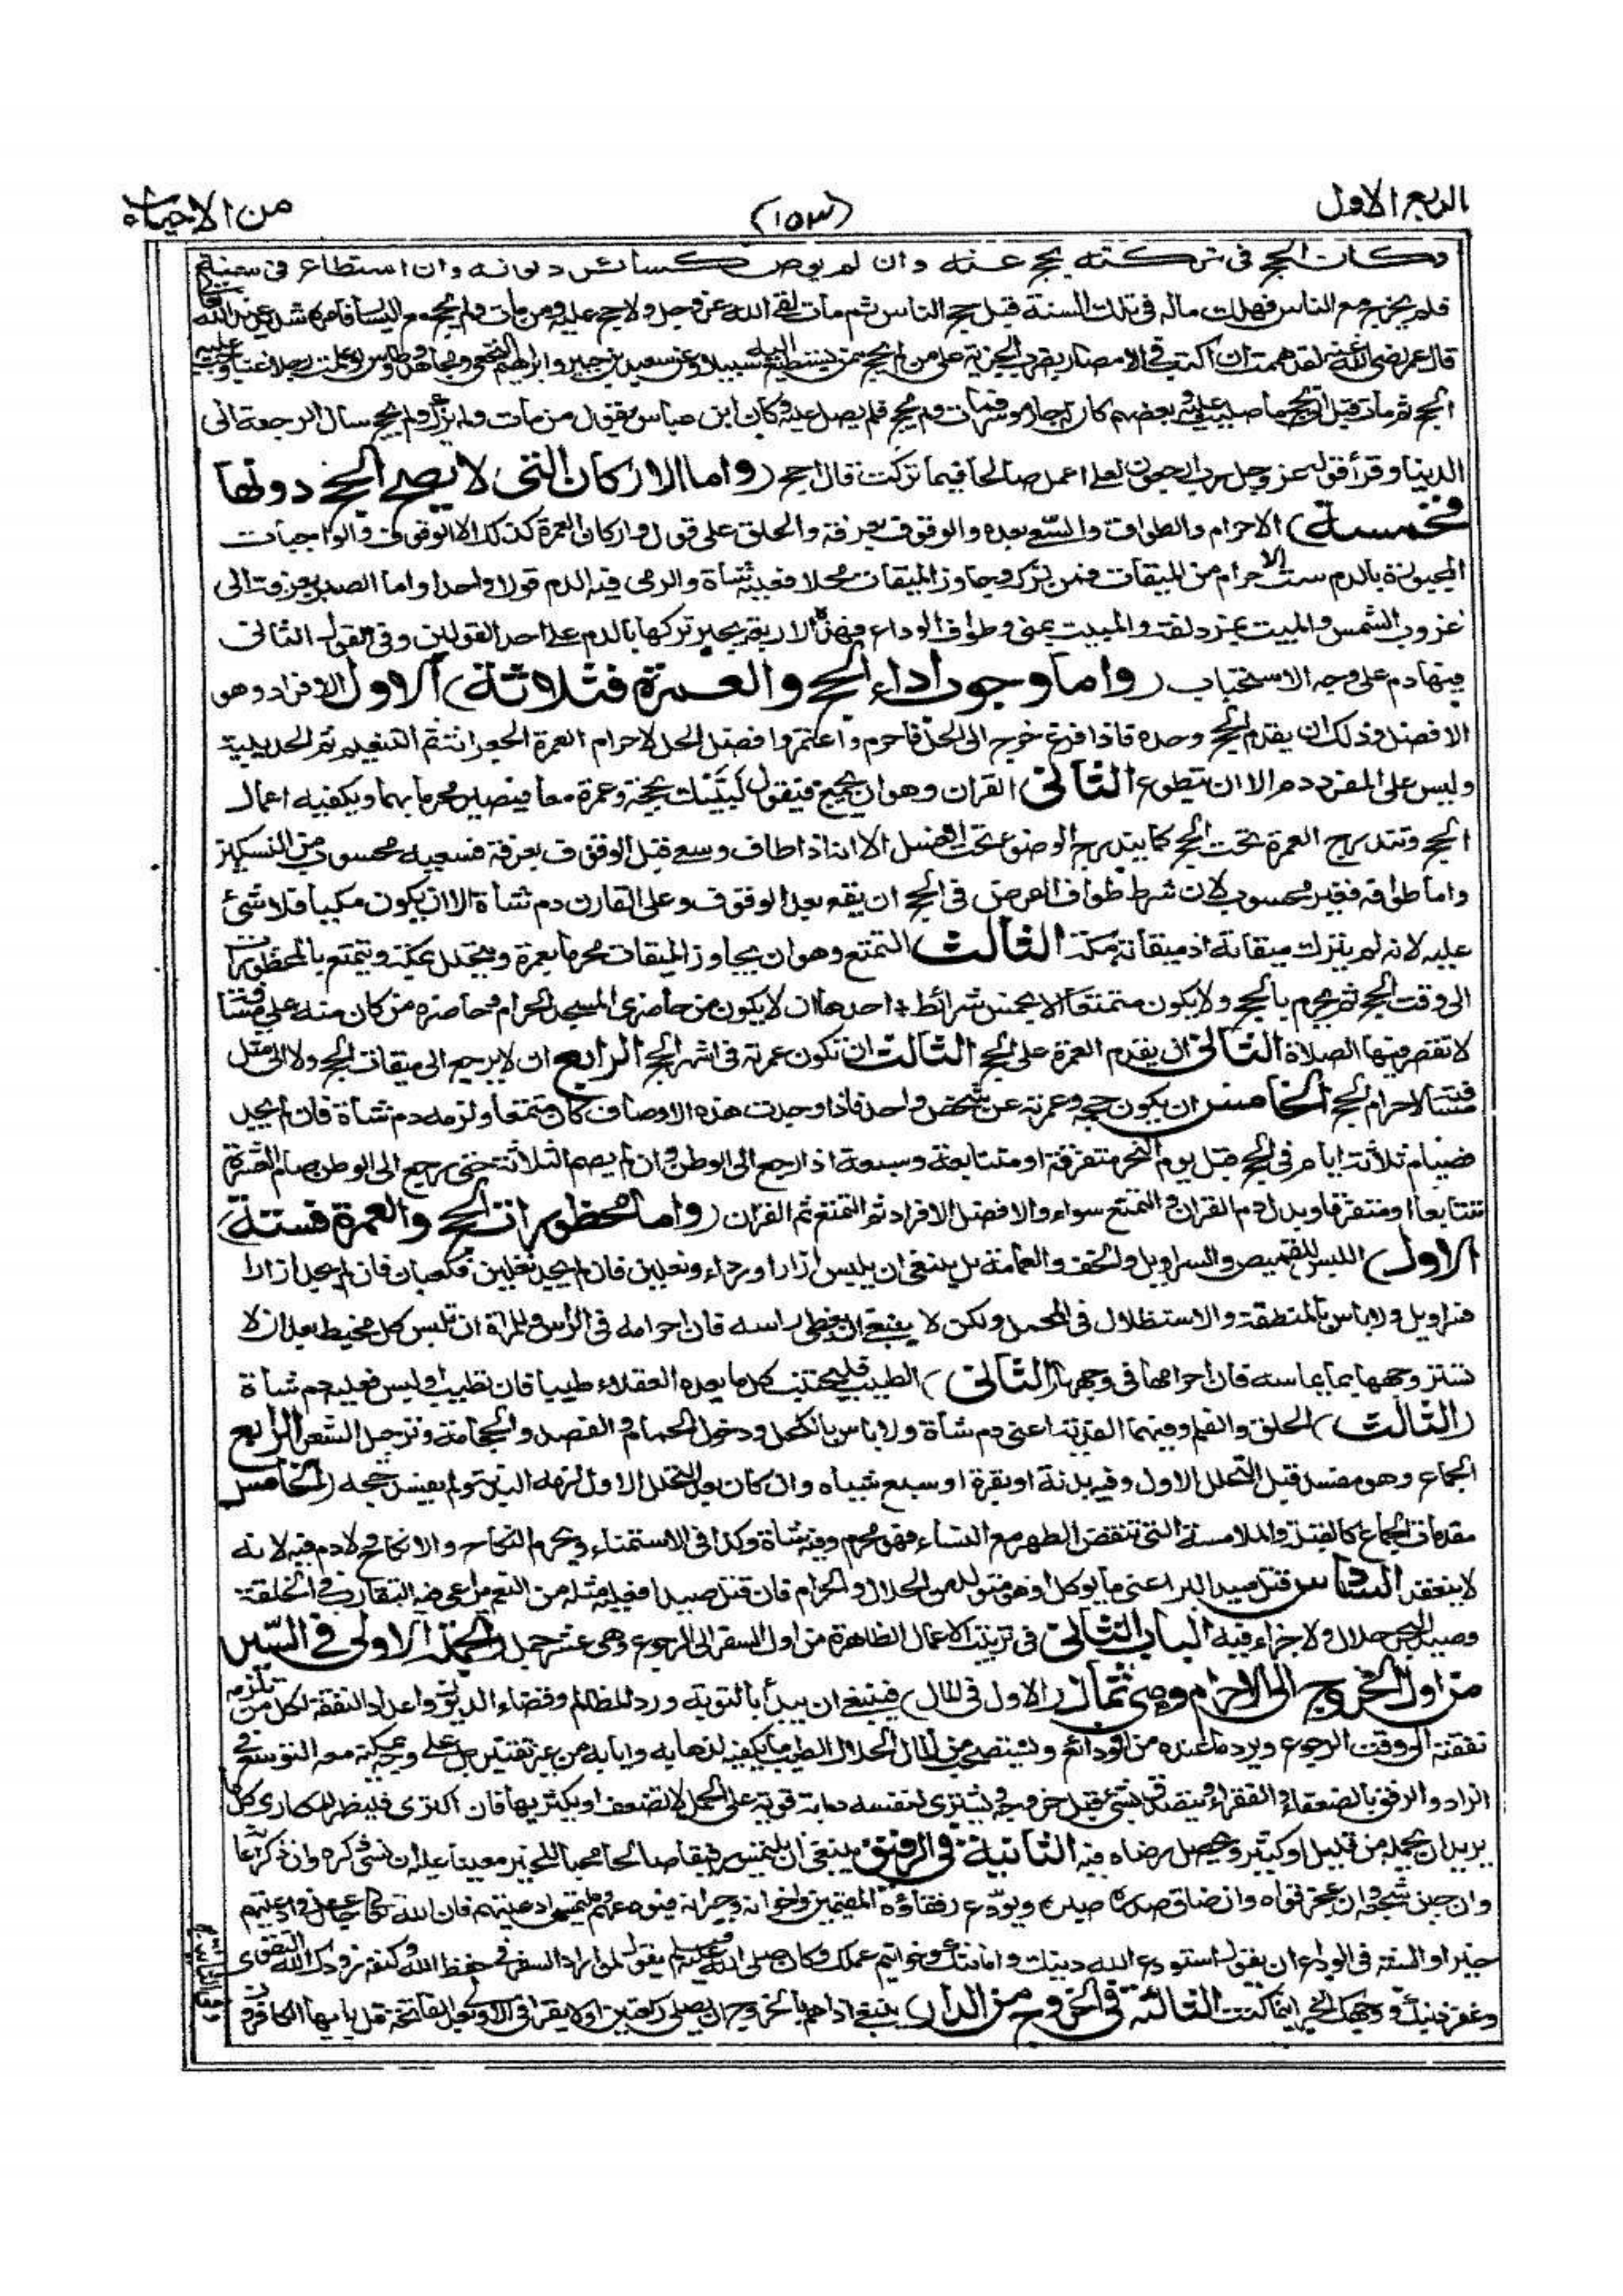 الربع الاول
(١٥٣)
من الاحياء
وكان الحج فى تركته يحج عنه وان لم يوص كسائر ديونه وان استطاع فى سنة
فلم يخرج مع الناس فهلك ماله فى تلك السنة قبل حج الناس ثم مات لقى الله عز وجل ولا حج عليه ومن مات ولم يحج مع اليسار فامره شديد عند الله تعالى
قال عمر رضى الله عنه لقد هممت ان اكتب فى الامصار بضرب الجزية على من لم يحج ممن يستطيع اليه سبيلا وعن سعيد بن جبير وابراهيم النخعى ومجاهد وطاوس لو علمت رجلا غنيا وجب عليه
الحج ثم مات قبل ان يحج ما صليت عليه وبعضهم كان له جار موسر فمات ولم يحج فلم يصل عليه وكان ابن عباس يقول من مات ولم يزك ولم يحج سأل الرجعة الى
الدنيا وقرأ قوله عز وجل رب ارجعون لعلى اعمل صالحا فيما تركت قال احج (واما الاركان التى لا يصح الحج دونها
فخمسة) الاحرام والطواف والسعى بعده والوقوف بعرفة والحلق على قول واركان العمرة كذلك الا الوقوف والواجبات
المجبورة بالدم ست الاحرام من الميقات فمن تركه وجاوز الميقات محلا فعليه شاة والرمى فيه الدم قولا واحدا واما الصبر بعرفة الى
غروب الشمس والمبيت بمزدلفة والمبيت بمنى وطواف الوداع فهذه الاربعة يجبر تركها بالدم على احد القولين وفى القول الثانى
فيها دم على وجه الاستحباب (واما وجوه اداء الحج والعمرة فثلاثة) الاول الافراد وهو
الافضل وذلك ان يقدم الحج وحده فاذا فرغ خرج الى الحل فاحرم واعتمر وافضل الحل لاحرام العمرة الجعرانة ثم التنعيم ثم الحديبية
وليس على المفرد دم الا ان يتطوع الثانى القران وهو ان يجمع فيقول لبيك بحجة وعمرة معا فيصير محرما بهما ويكفيه اعمال
الحج وتندرج العمرة تحت الحج كما يندرج الوضوء تحت الغسل الا انه اذا طاف وسعى قبل الوقوف بعرفة فسعيه محسوب من النسكين
واما طوافه فغير محسوب لان شرط طواف الفرض فى الحج ان يقع بعد الوقوف وعلى القارن دم شاة الا ان يكون مكيا فلا شئ
عليه لانه لم يترك ميقاته اذ ميقاته مكة الثالث التمتع وهو ان يجاوز الميقات محرما بعمرة ويتحلل بمكة ويتمتع بالمحظورات
الى وقت الحج ثم يحرم بالحج ولا يكون متمتعا الا بخمس شرائط احدها ان لا يكون من حاضرى المسجد الحرام وحاضره من كان منه على مسافة
لا تقصر فيها الصلاة الثانى ان يقدم العمرة على الحج الثالث ان تكون عمرته فى اشهر الحج الرابع ان لا يرجع الى ميقات الحج ولا الى مثل
مسافته لاحرام الحج الخامس ان يكون حجه وعمرته عن شخص واحد فاذا وجدت هذه الاوصاف كان متمتعا ولزمه دم شاة فان لم يجد
فصيام ثلاثة ايام فى الحج قبل يوم النحر متفرقة او متتابعة وسبعة اذا رجع الى الوطن وان لم يصم الثلاثة حتى رجع الى الوطن صام العشرة
تتابعا او متفرقا وبدل دم القران والتمتع سواء والافضل الافراد ثم التمتع ثم القران (واما محظورات الحج والعمرة فستة)
الاول) اللبس للقميص والسراويل والخف والعمامة بل ينبغى ان يلبس ازارا ورداء ونعلين فان لم يجد نعلين فمكعبان فان لم يجد ازارا
فسراويل ولا باس بالمنطقة والاستظلال فى المحمل ولكن لا ينبغى ان يغطى راسه فان احرامه فى الرأس وللمرأة ان تلبس كل مخيط بعد ان لا
تستر وجهها بما يماسه فان احرامها فى وجهها (الثانى) الطيب فليجتنب كل ما يعده العقلاء طيبا فان تطيب او لبس فعليه دم شاة
(الثالث) الحلق والقلم وفيهما الفدية اعنى دم شاة ولا باس بالكحل ودخول الحمام والفصد والحجامة وترجيل الشعر الرابع
الجماع وهو مفسد قبل التحلل الاول وفيه بدنة او بقرة او سبع شياه وان كان بعد التحلل الاول لزمه البدنة ولم يفسد حجه (الخامس
مقدمات الجماع كالقبلة والملامسة التى تنقض الطهر مع النساء فهو محرم وفيه شاة وكذا فى الاستمناء ويحرم النكاح والانكاح ولا دم فيه لانه
لا ينعقد السادس قتل صيد البر اعنى ما يوكل او هو متولد من الحلال والحرام فان قتل صيدا فعليه مثله من النعم يراعى فيه التقارب فى الخلقة
وصيد البحر حلال ولا جزاء فيه الباب الثانى فى ترتيب الاعمال الظاهرة من اول السفر الى الرجوع وهى عشر جمل الجملة الاولى فى السير
من اول الخروج الى الاحرام وهى ثمان (الاول فى المال) فينبغى ان يبدأ بالتوبة ورد المظالم وقضاء الديون واعداد النفقة لكل من تلزمه
نفقته الى وقت الرجوع ويرد ما عنده من الودائع ويستصحب من المال الحلال الطيب ما يكفيه لذهابه وايابه من غير تقتير بل على وجه يمكنه معه التوسع فى
الزاد والرفق بالضعفاء والفقراء ويتصدق بشئ قبل خروجه ويشترى لنفسه دابة قوية على الحمل لا تضعف او يكتريها فان اكترى فليظهر للمكارى كل ما
يريد ان يحمله من قليل او كثير ويحصل رضاه فيه الثانية فى الرفيق ينبغى ان يلتمس رفيقا صالحا محبا للخير معينا عليه ان نسى ذكره وان ذكر اعانه
وان جبن شجعه وان عجز قواه وان ضاق صدره صبره ويودع رفقاؤه المقيمين واخوانه وجيرانه فيودعهم ويلتمس ادعيتهم فان الله تعالى جاعل فى ادعيتهم
خيرا والسنة فى الوداع ان يقول استودع الله دينك وامانتك وخواتيم عملك وكان صلى الله عليه وسلم يقول لمن اراد السفر فى حفظ الله وكنفه زودك الله التقوى
وغفر ذنبك ووجهك للخير اينما كنت الثالثة فى الخروج من الدار ينبغى اذا هم بالخروج ان يصلى ركعتين اولا يقرأ فى الاولى بعد الفاتحة قل يا ايها الكافرون
وفى الثانية